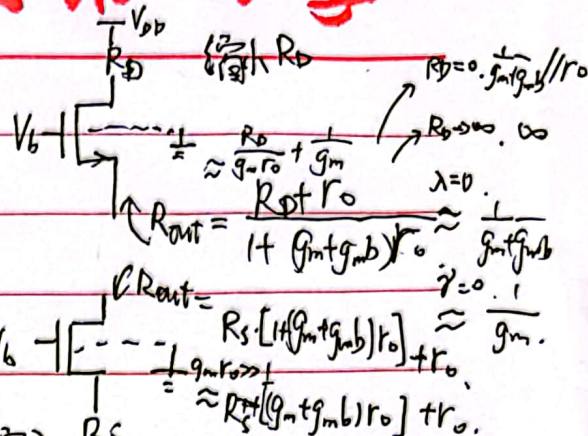 V_DD
R_D 缩小 R_D
R_D=0. 1/(g_m+g_mb)//r_o
V_b
R_D→∞. ∞
≈ R_D/(g_m r_o) + 1/g_m
λ=0.
R_out = (R_D+r_o)/(1+(g_m+g_mb)r_o) ≈ 1/(g_m+g_mb)
γ=0. ≈ 1/g_m.
R_out =
R_S·[1+(g_m+g_mb)r_o]+r_o.
g_m r_o>>1
≈ [(g_m+g_mb)r_o]+r_o.
R_S